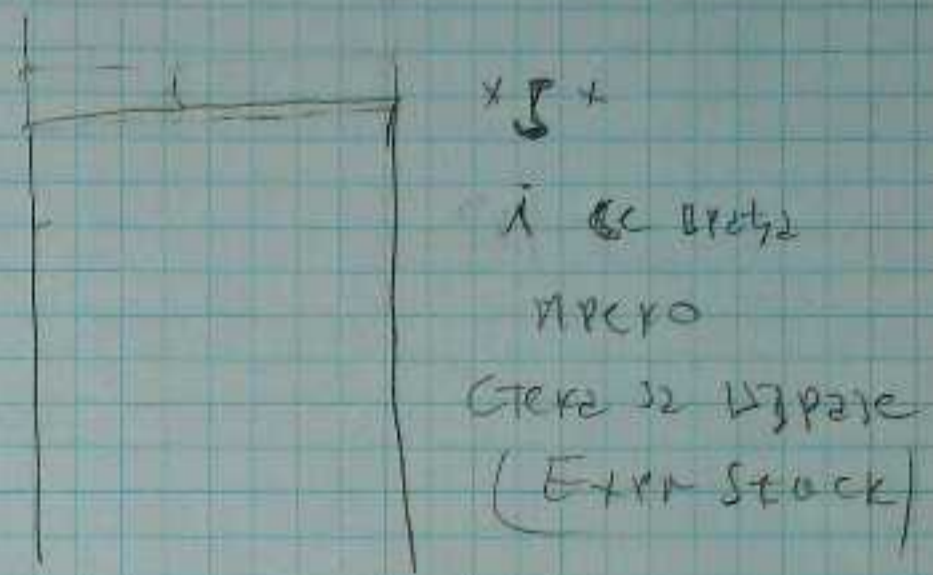 се враћа
преко
Стека за изразе
(Expr Stack)